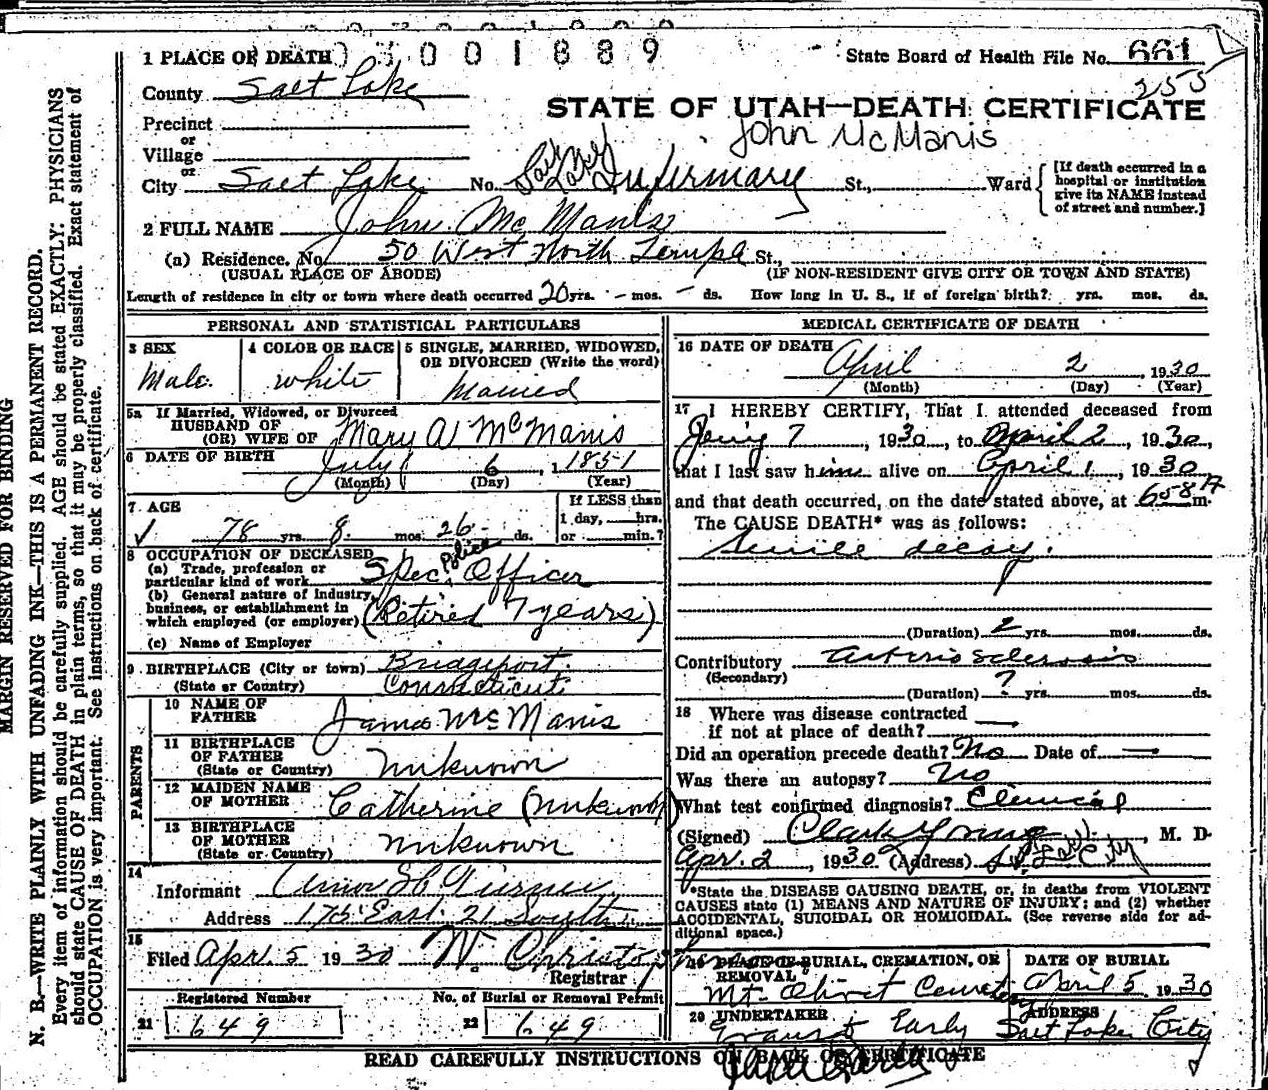 3001889
1 PLACE OF DEATH
State Board of Health File No. 661
255
County Salt Lake
STATE OF UTAH—DEATH CERTIFICATE
Precinct
John McManis
or
Village
or
City Salt Lake No. Salt Lake Infirmary St., Ward
[If death occurred in a hospital or institution give its NAME instead of street and number.]
2 FULL NAME John McManis
(a) Residence. No. 50 West North Temple St.,
(USUAL PLACE OF ABODE) (IF NON-RESIDENT GIVE CITY OR TOWN AND STATE)
Length of residence in city or town where death occurred 20 yrs. - mos. - ds. How long in U. S., if of foreign birth? yrs. mos. ds.
PERSONAL AND STATISTICAL PARTICULARS
3 SEX
Male.
4 COLOR OR RACE
white
5 SINGLE, MARRIED, WIDOWED,
OR DIVORCED (Write the word)
Married
5a If Married, Widowed, or Divorced
HUSBAND OF
(OR) WIFE OF Mary A McManis
6 DATE OF BIRTH July 6, 1851
(Month) (Day) (Year)
7 AGE
78 yrs. 8 mos. 26 ds.
If LESS than
1 day, hrs.
or min.?
8 OCCUPATION OF DECEASED
(a) Trade, profession or
particular kind of work Spec. Police Officer
(b) General nature of industry,
business, or establishment in
which employed (or employer) (Retired 7 years)
(c) Name of Employer
9 BIRTHPLACE (City or town) Bridgeport.
(State or Country) Connecticut
PARENTS
10 NAME OF
FATHER James McManis
11 BIRTHPLACE
OF FATHER
(State or Country) unknown
12 MAIDEN NAME
OF MOTHER Catherine (unknown)
13 BIRTHPLACE
OF MOTHER
(State or Country) unknown
14
Informant
Address 175 East 21 South
15
Filed Apr. 5 1930
Registrar
Registered Number
21 649
No. of Burial or Removal Permit
22 649
MEDICAL CERTIFICATE OF DEATH
16 DATE OF DEATH
April 2, 1930
(Month) (Day) (Year)
17 I HEREBY CERTIFY, That I attended deceased from
7, 1930, to April 2, 1930,
that I last saw him alive on April 1, 1930
and that death occurred, on the date stated above, at 658 A m.
The CAUSE DEATH* was as follows:
Senile decay.
(Duration) 2 yrs. mos. ds.
Contributory arteriosclerosis
(Secondary)
(Duration) ? yrs. mos. ds.
18 Where was disease contracted
if not at place of death?
Did an operation precede death? No Date of —
Was there an autopsy? No
What test confirmed diagnosis? Clinical
(Signed) Clark Young, M. D
Apr. 2, 1930 (Address) S. Lake City
*State the DISEASE CAUSING DEATH, or, in deaths from VIOLENT
CAUSES state (1) MEANS AND NATURE OF INJURY; and (2) whether
ACCIDENTAL, SUICIDAL OR HOMICIDAL. (See reverse side for ad-
ditional space.)
19 PLACE OF BURIAL, CREMATION, OR
REMOVAL
Mt. Olivet Cemetery
DATE OF BURIAL
April 5 1930
20 UNDERTAKER
Early
ADDRESS
Salt Lake City
READ CAREFULLY INSTRUCTIONS ON BACK OF CERTIFICATE
MARGIN RESERVED FOR BINDING
N. B.—WRITE PLAINLY WITH UNFADING INK—THIS IS A PERMANENT RECORD.
Every item of information should be carefully supplied. AGE should be stated EXACTLY. PHYSICIANS
should state CAUSE OF DEATH in plain terms, so that it may be properly classified. Exact statement of
OCCUPATION is very important. See instructions on back of certificate.